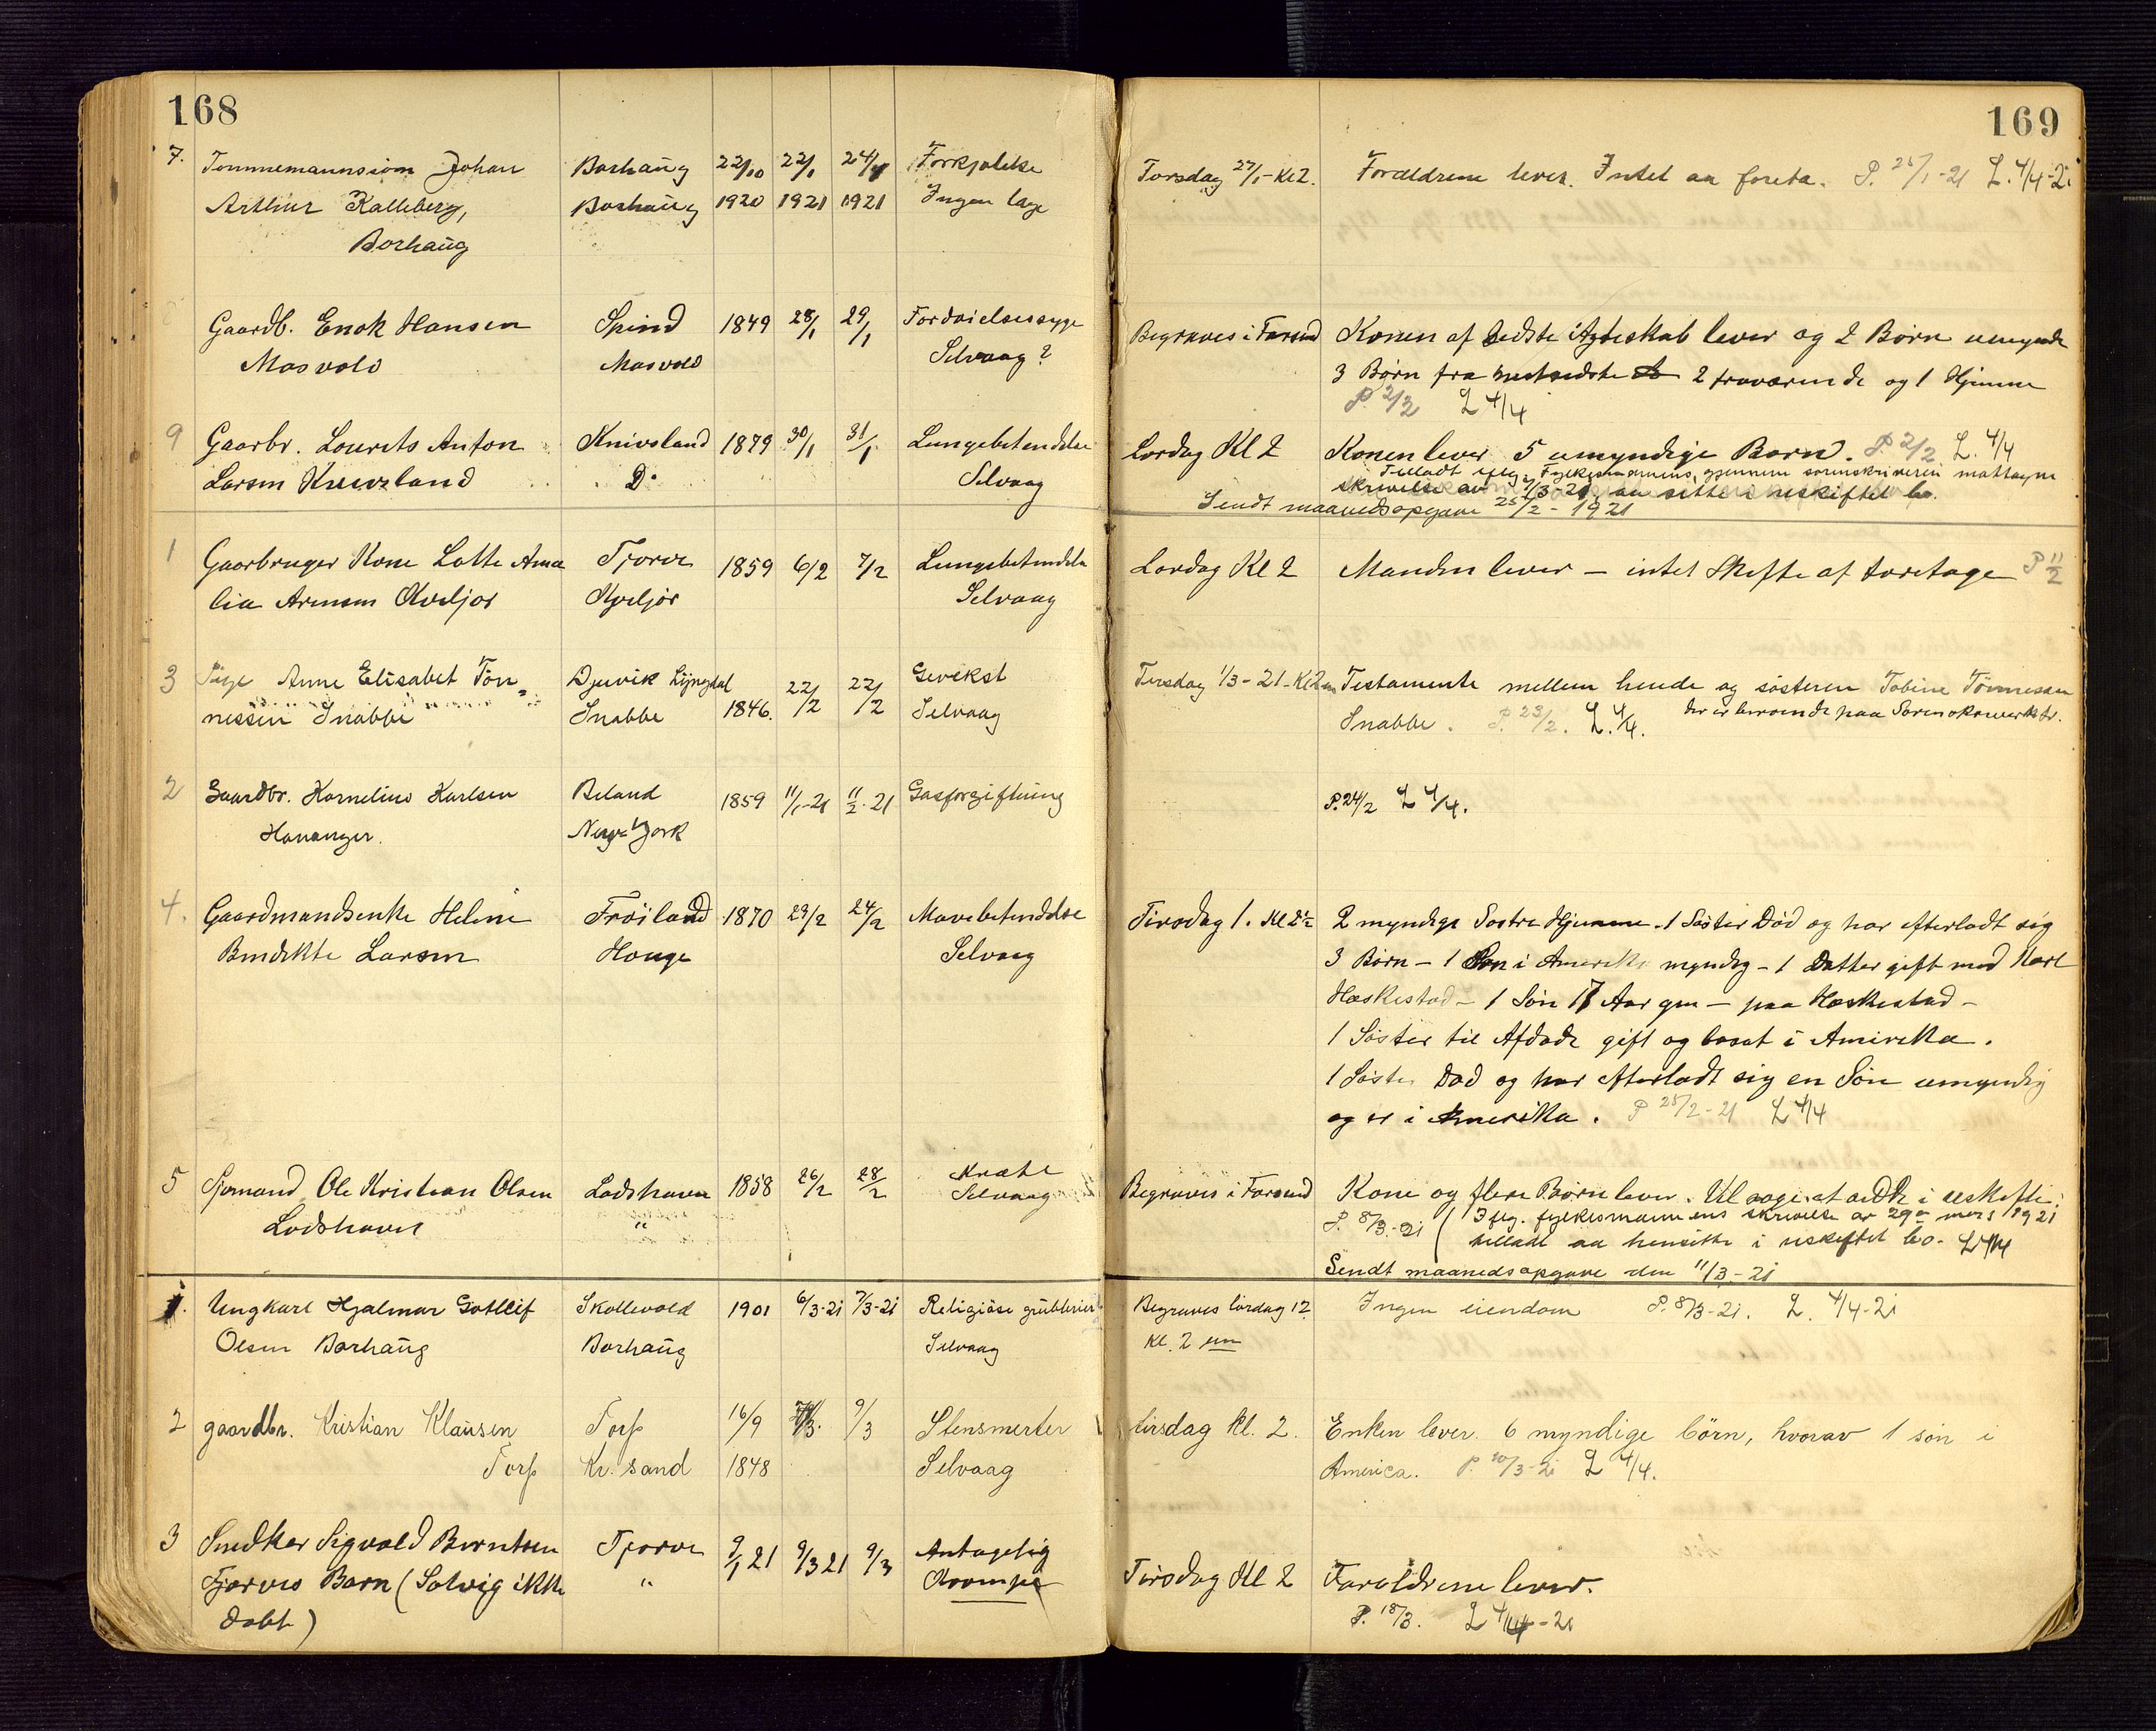 168
7. Tømmemannssøn Johan Borhaŭg 22/10 22/1 24/1 Forkjølelse
Arthur Kalleberg, Borhaŭg 1920 1921 1921 Ingen læge
Borhaŭg
Gaardb. Enok Hansen Spind 1849 28/1 29/1 Fordøielsessyge
Mosvold Mosvold Selvaag ?
9 Gaarbr. Lourits Anton Knivsland 1879 30/1 31/1 Lungebetendelse
Larsen Knivsland D. Selvaag
1 Gaarbruger Kone Lotte Ama Tjorve 1859 6/2 7/2 Lungebetendelse
lia Arnesen Kveljor Kveljor Selvaag
3 Pige Anne Elisabet Tøn= Djuvik Lyngdal 22/2 22/2 Gevekst
nessen Snabbe Snabbe 1846. Selvaag
2 Gaardbr. Kornelius Karlsen Beland 1859 11/1-21 11/2-21 Gasforgiftning
Hananger. New York
4. Gaardmandsenke Helene Frøiland 1870 29/2 24/2 Mavebetendelse
Bendikte Larsen Houge Selvaag
5 Sjømand Ole Kristian Olsen Lodshavn 1858 26/2 28/2 Kræft
Lodshavn " Selvaag
1. Ungkarl Hjalmar Gotleif Skollevold 1901 6/3-21 7/3-21 Religiøse grublerier
Olsen Borhaŭg Borhaŭg Selvaag
2 gaardbr. Kristian Klaŭsen Torp 16/9 9/3 Stensmerter
Torp Kr. sand 1848 Selvaag
3 Snedker Sigvald Berntsen Tjorve 9/1 21 9/3 21 9/3 Antagelig
Tjørves Barn (Solveig ikke " Krampe
døbt)
169
Torsdag 27/1-Kl 2. Forældrene lever. Intet aa foreta. P. 25/1-21 L. 4/4-21
Begraves i Farsund Konen af sidste Ægteskab lever og 2 Børn umyndi
3 Børn fra nestsidste 2 fraværende og 1 Hjemme
P. 2/2 L 4/4
Lørdag Kl 2 Konen lever 5 umyndige Børn. P. 2/2 L. 4/4
Tilladt iflg. Fylkesmannens, gjennem sorenskriveren mottagne
skrivelse av 7/3-21, aa sitte i uskiftet bo.
Sendt maanedsopgave 25/2-1921
Lørdag Kl 2 Manden lever – intet Skifte af foretage P 11/2
Tirsdag 1/3-21-Kl 2 em Testamente mellem hende og søsteren Tobine Tønnessen
Snabbe. P. 23/2. L. 4/4. der er beroende paa Sorenskriverktr.
P. 24/2 L 4/4.
Tirsdag 1. Kl 2½ 2 myndige Søstre Hjemme. 1 Søster Død og har efterladt sig
3 Børn – 1 Søn i Amerika myndig – 1 Datter gift med Karl
Hæskestad – 1 Søn 17 Aar gm – paa Hæskestad –
1 Søster til Afdøde gift og bosat i Amerika.
1 Søster Død og har efterladt sig en Søn umyndig
og er i Amerika. P 28/2-21 L 4/4
Begraves i Farsund Kone og flere Børn lever. Vil søge at sidde i uskifte.
P. 8/3-21 ( Iflg. fylkesmannens skrivelse av 29de mars 1921
tilladt aa hensitte i uskiftet bo. L 4/4
Sendt maanedsopgave den 11/3-21
Begraves lørdag 12. Ingen eiendom P. 8/3-21. L. 4/4-21
Kl. 2 em
tirsdag kl. 2. Enken lever. 6 myndige børn, hvorav 1 søn i
America. P. 10/3-21 L 4/4.
Tirsdag Kl 2 Forældrene lever.
P. 18/3. L 4/4-21